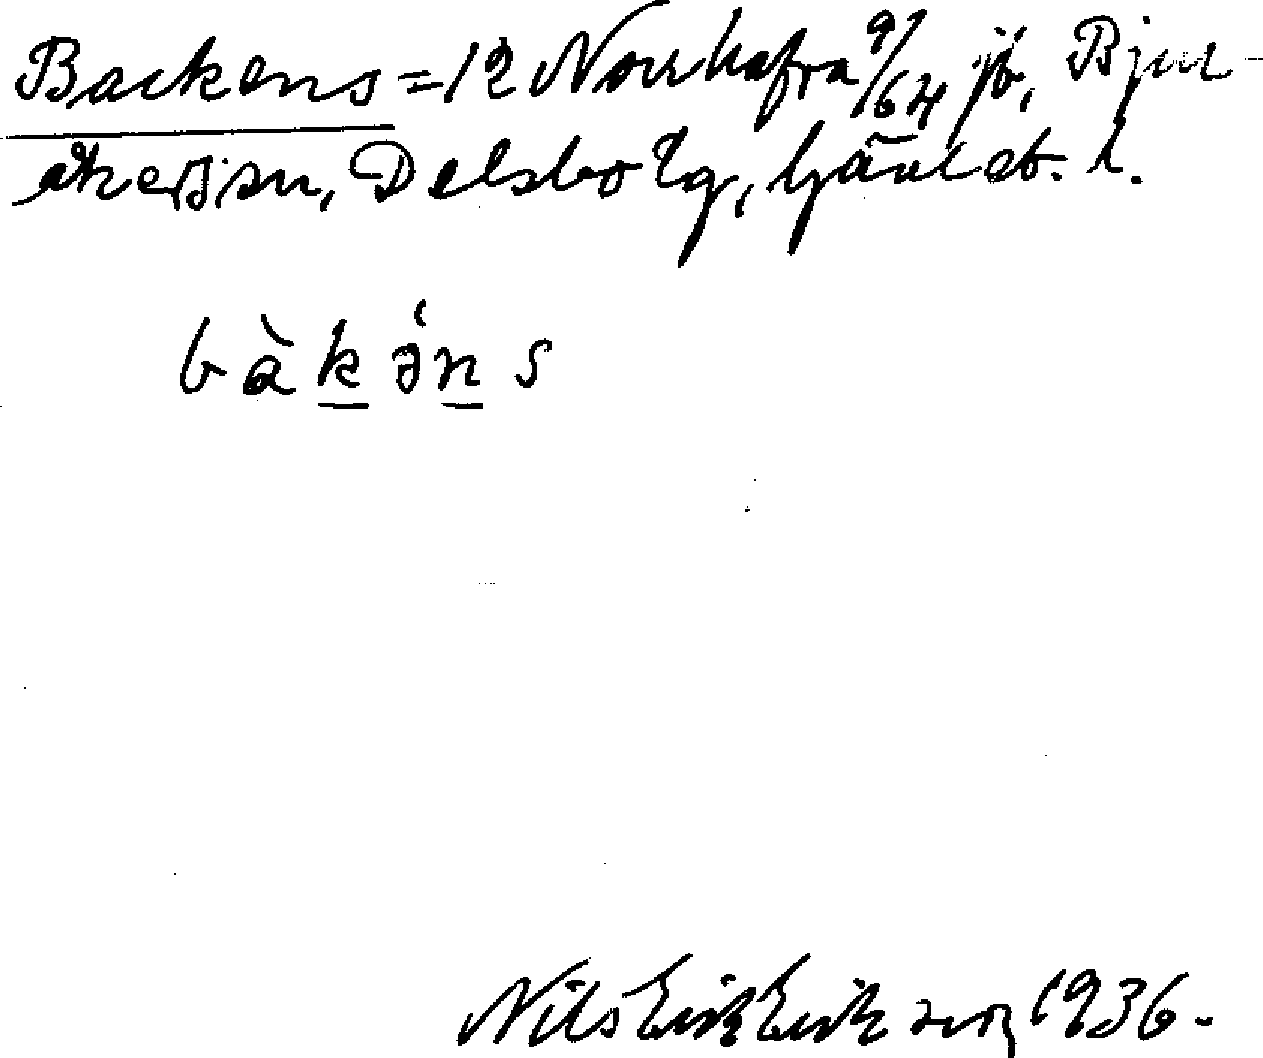 Backens = 12 Norrhafra 9/64 jb, Bjur-
åkers sn, Delsbo tg, Gävleb. l.
bàkə́ns
Nils Erik Erikson 1936.